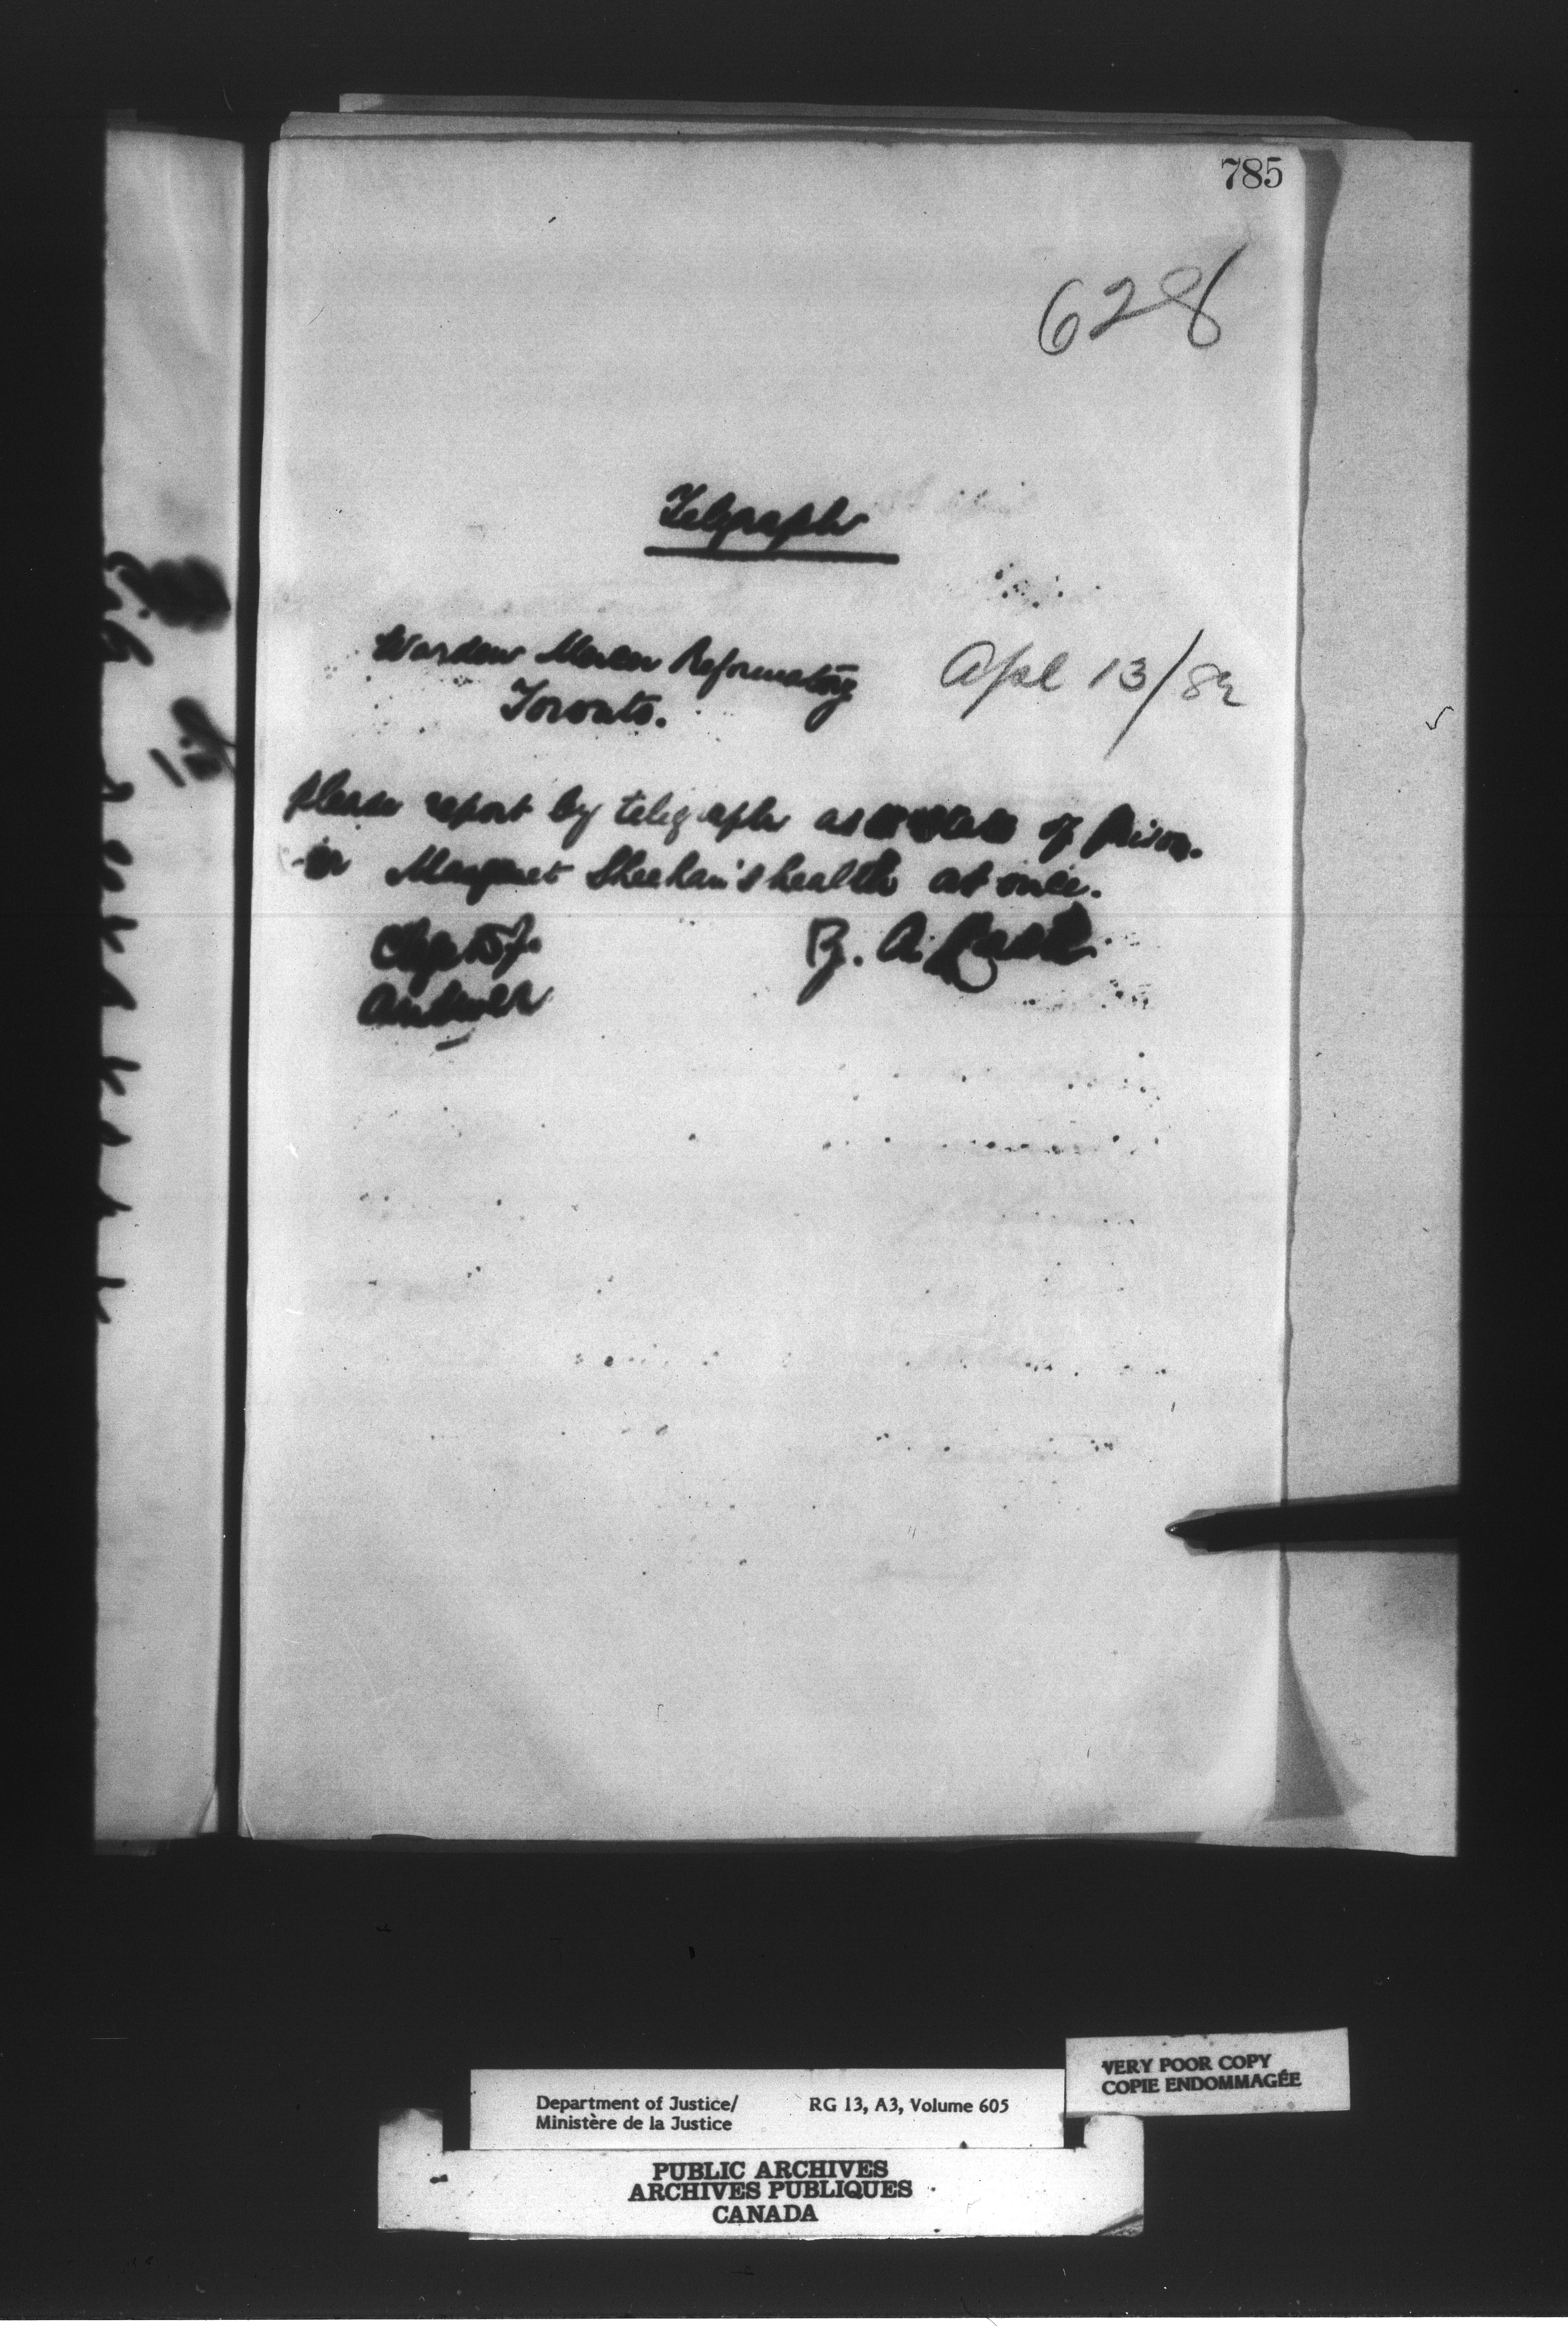 785
628
Telegraph
Warden Mercer Reformatory
Apl 13/82
Toronto.
Please report by telegraph as to state of prison-
er Margaret Sheehan's health at once.
Chge D of J.
Z. A. Lash
Answer
VERY POOR COPY
COPIE ENDOMMAGÉE
Department of Justice/ RG 13, A3, Volume 605
Ministère de la Justice
PUBLIC ARCHIVES
ARCHIVES PUBLIQUES
CANADA